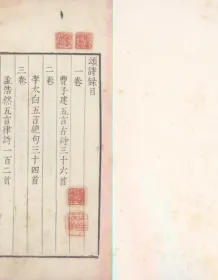 頌詩錄目
一卷
曹子建五言古詩三十六首
二卷
李太白五言絕句三十四首
三卷
孟浩然五言律詩一百二首